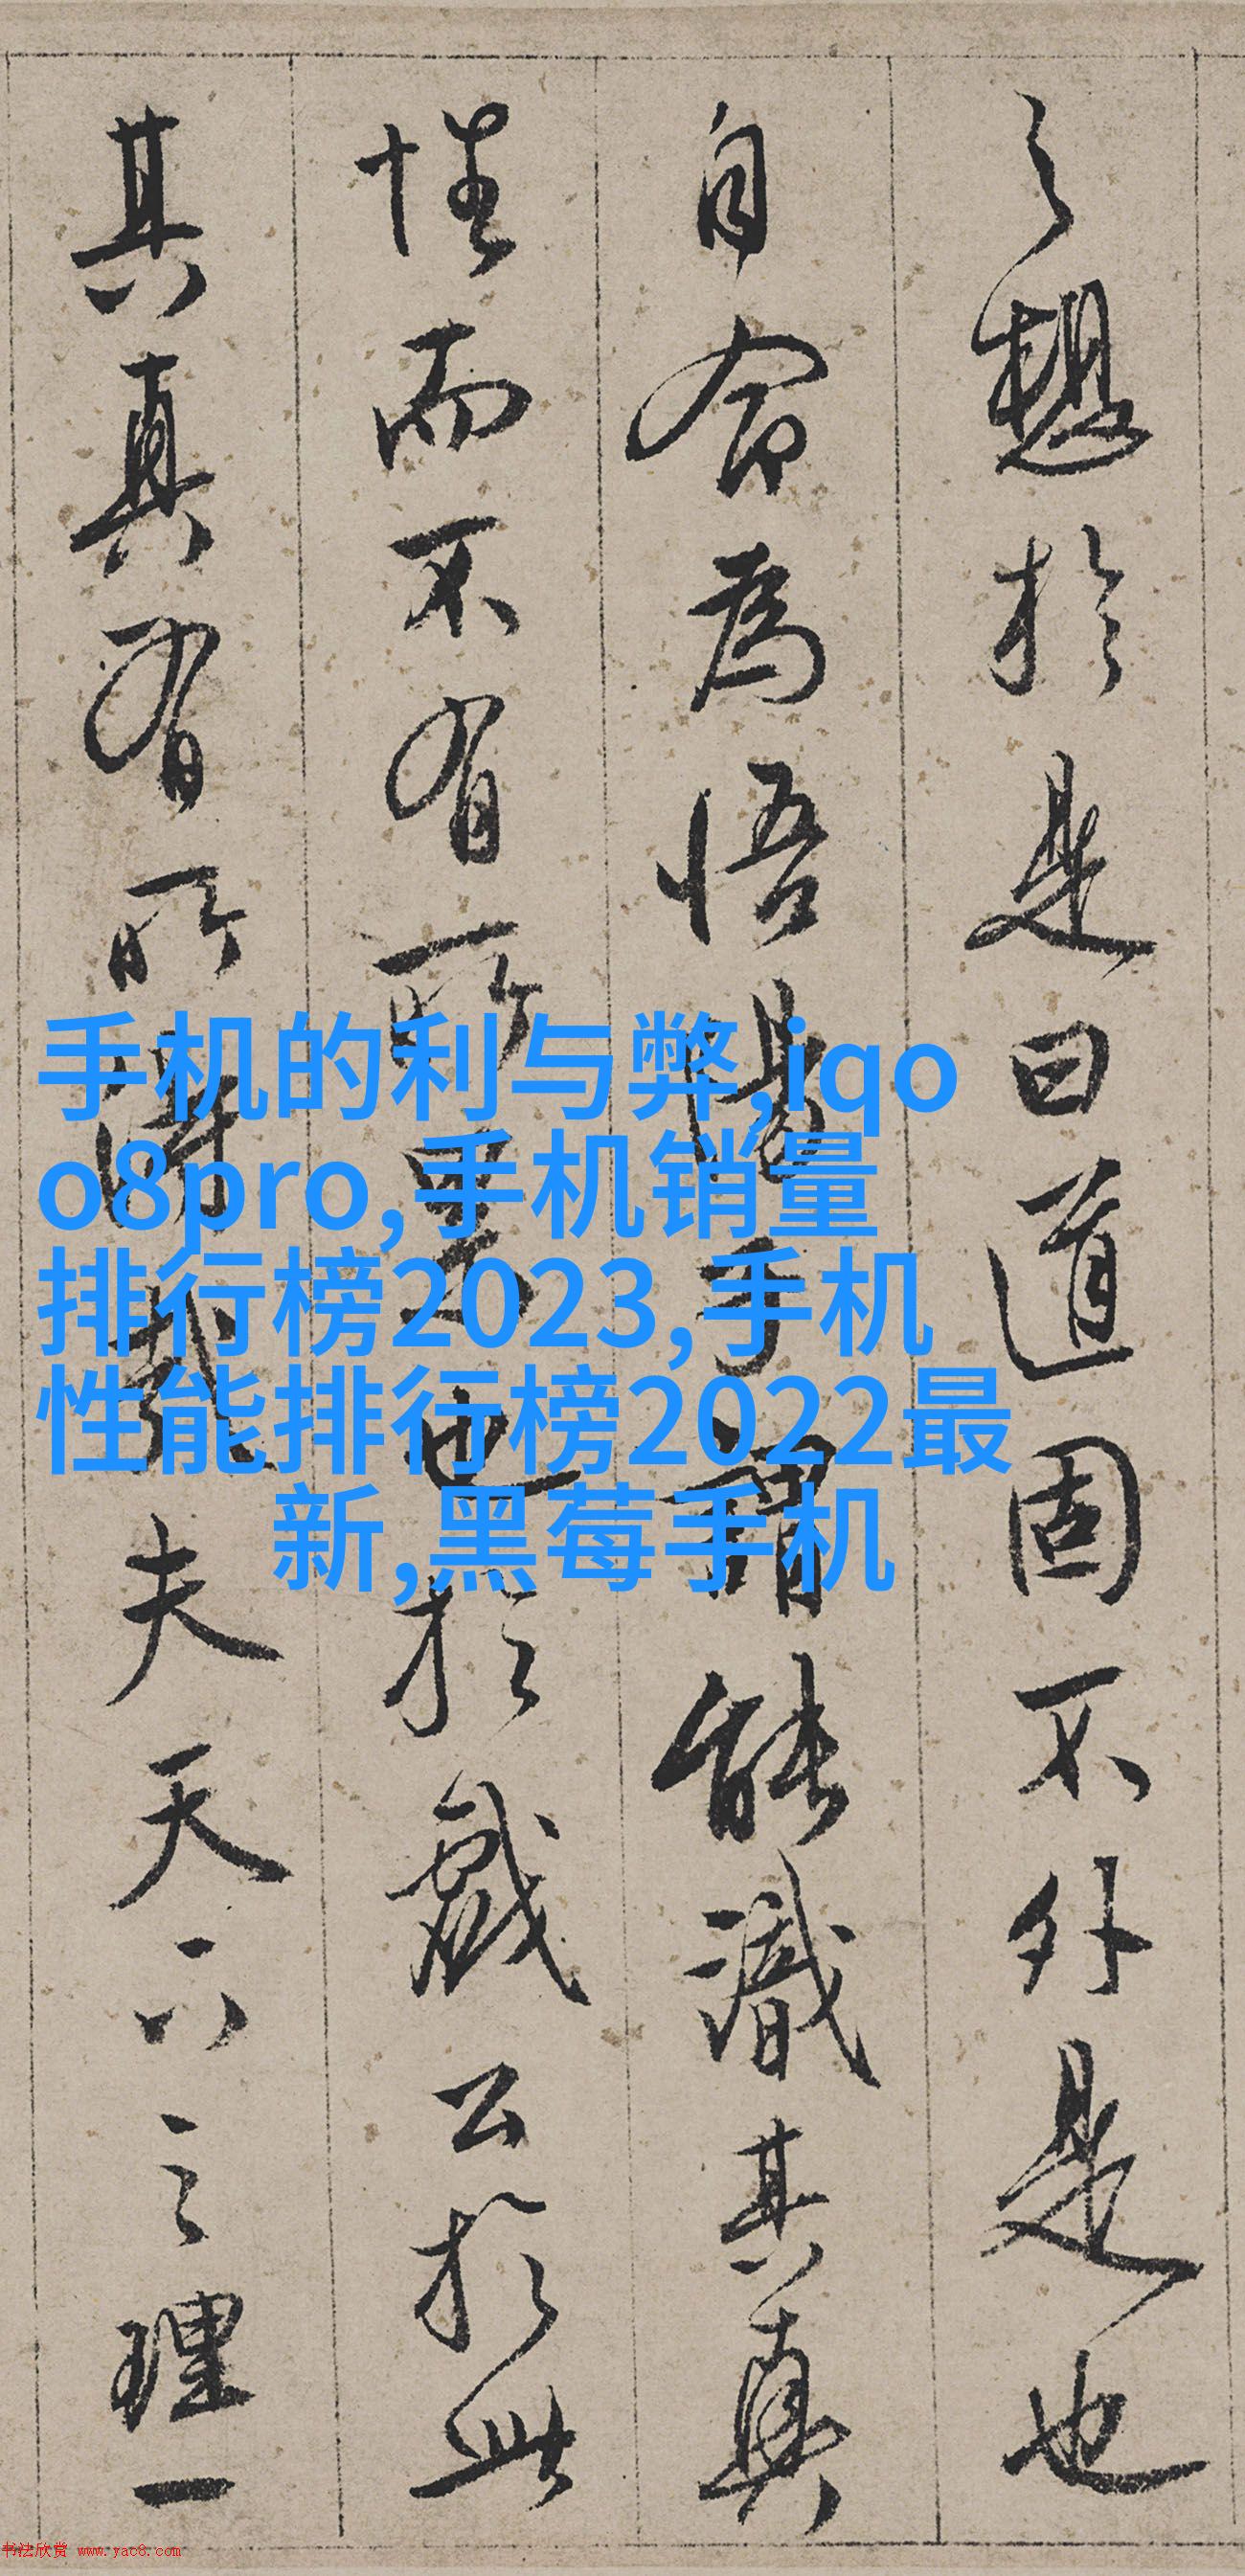 之想於是曰道固不外是也
自命為悟
能識其真
性而不有所
也於戲公於此
其真有所
夫天下之理一
手机的利与弊,iqo
o8pro,手机销量
排行榜2023,手机
性能排行榜2022最
新,黑莓手机
书法欣赏 www.yac8.com